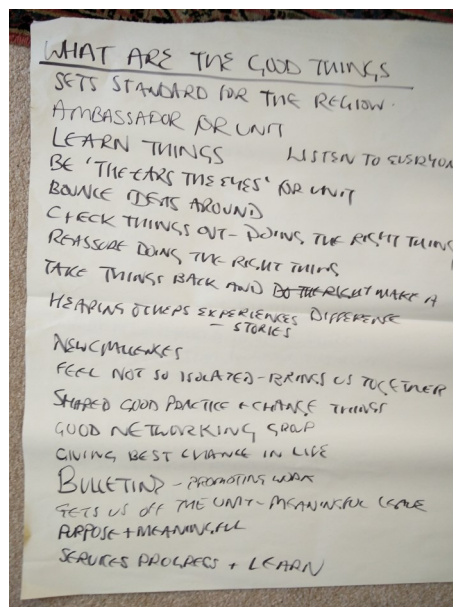 WHAT ARE THE GOOD THINGS
SETS STANDARD FOR THE REGION.
AMBASSADOR FOR UNIT
LEARN THINGS LISTEN TO EVERYON
BE 'THE EARS THE EYES' FOR UNIT
BOUNCE IDEAS AROUND
CHECK THINGS OUT - DOING THE RIGHT THING
REASSURE DOING THE RIGHT THING
TAKE THINGS BACK AND DO THE RIGHT MAKE A
HEARING OTHERS EXPERIENCES DIFFERENSE
- STORIES
NEW CHALLENGES
FEEL NOT SO ISOLATED - BRINGS US TOGETHER
SHARED GOOD PRACTICE + CHANGE THINGS
GOOD NETWORKING GROUP
GIVING BEST CHANCE IN LIFE
BULLETINS - PROMOTING WORK
GETS US OFF THE UNIT - MEANINGFUL LEAVE
PURPOSE + MEANINGFUL
SERVICES PROGRESS + LEARN